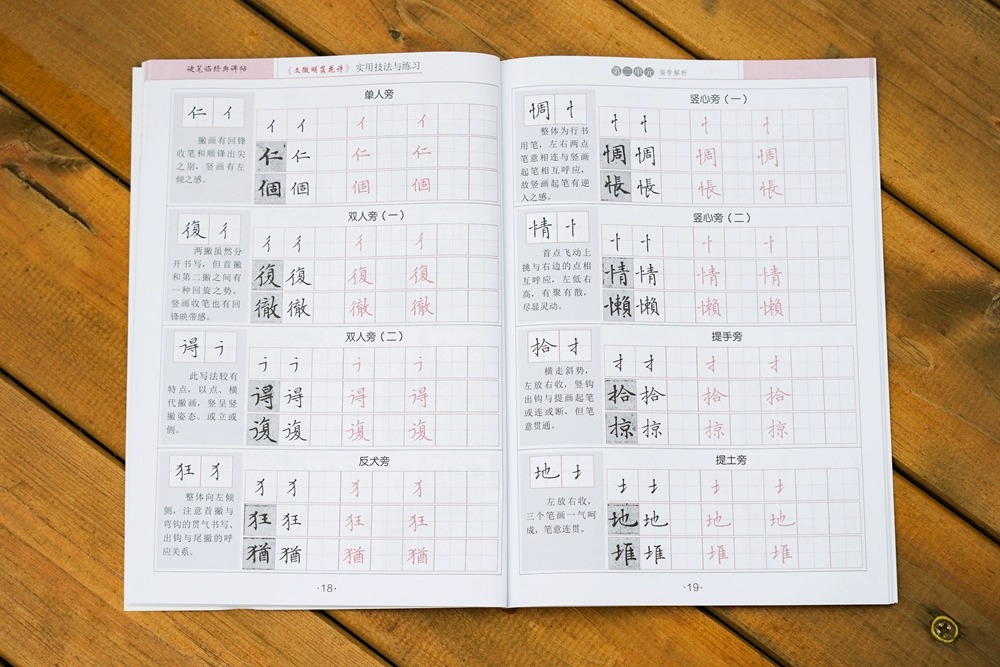 硬笔临经典碑帖
《文徵明落花诗》 实用技法与练习
单人旁
仁 亻
撇画有回锋
收笔和顺锋出尖
之别，竖画有左
倾之感。
亻 亻 亻 亻
仁 仁 仁 仁
個 個 個 個
双人旁（一）
復 彳
两撇虽然分
开书写，但首撇
和第二撇之间有
一种回旋之势。
竖画收笔也有回
锋映带感。
彳 彳 彳 彳
復 復 復 復
徹 徹 徹 徹
双人旁（二）
得
此写法较有
特点，以点、横
代撇画，竖呈竖
撇姿态。或立或
侧。
得 得 得 得
復 復 復 復
反犬旁
狂 犭
整体向左倾
侧，注意首撇与
弯钩的贯气书写、
出钩与尾撇的呼
应关系。
犭 犭 犭 犭
狂 狂 狂 狂
猶 猶 猶 猶
·18·
第二单元 保学解析
竖心旁（一）
惆 忄
整体为行书
用笔，左右两点
笔意相连与竖画
起笔相互呼应，
故竖画起笔有逆
入之感。
忄 忄 忄 忄
惆 惆 惆 惆
悵 悵 悵 悵
竖心旁（二）
情 忄
首点飞动上
挑与右边的点相
互呼应，左低右
高，有聚有散，
尽显灵动。
忄 忄 忄 忄
情 情 情 情
懶 懶 懶 懶
提手旁
拾 扌
横走斜势，
左放右收，竖钩
出钩与提画起笔
或连或断，但笔
意贯通。
扌 扌 扌 扌
拾 拾 拾 拾
掠 掠 掠 掠
提土旁
地
左放右收，
三个笔画一气呵
成，笔意连贯。
地 地 地 地
堆 堆 堆 堆
·19·